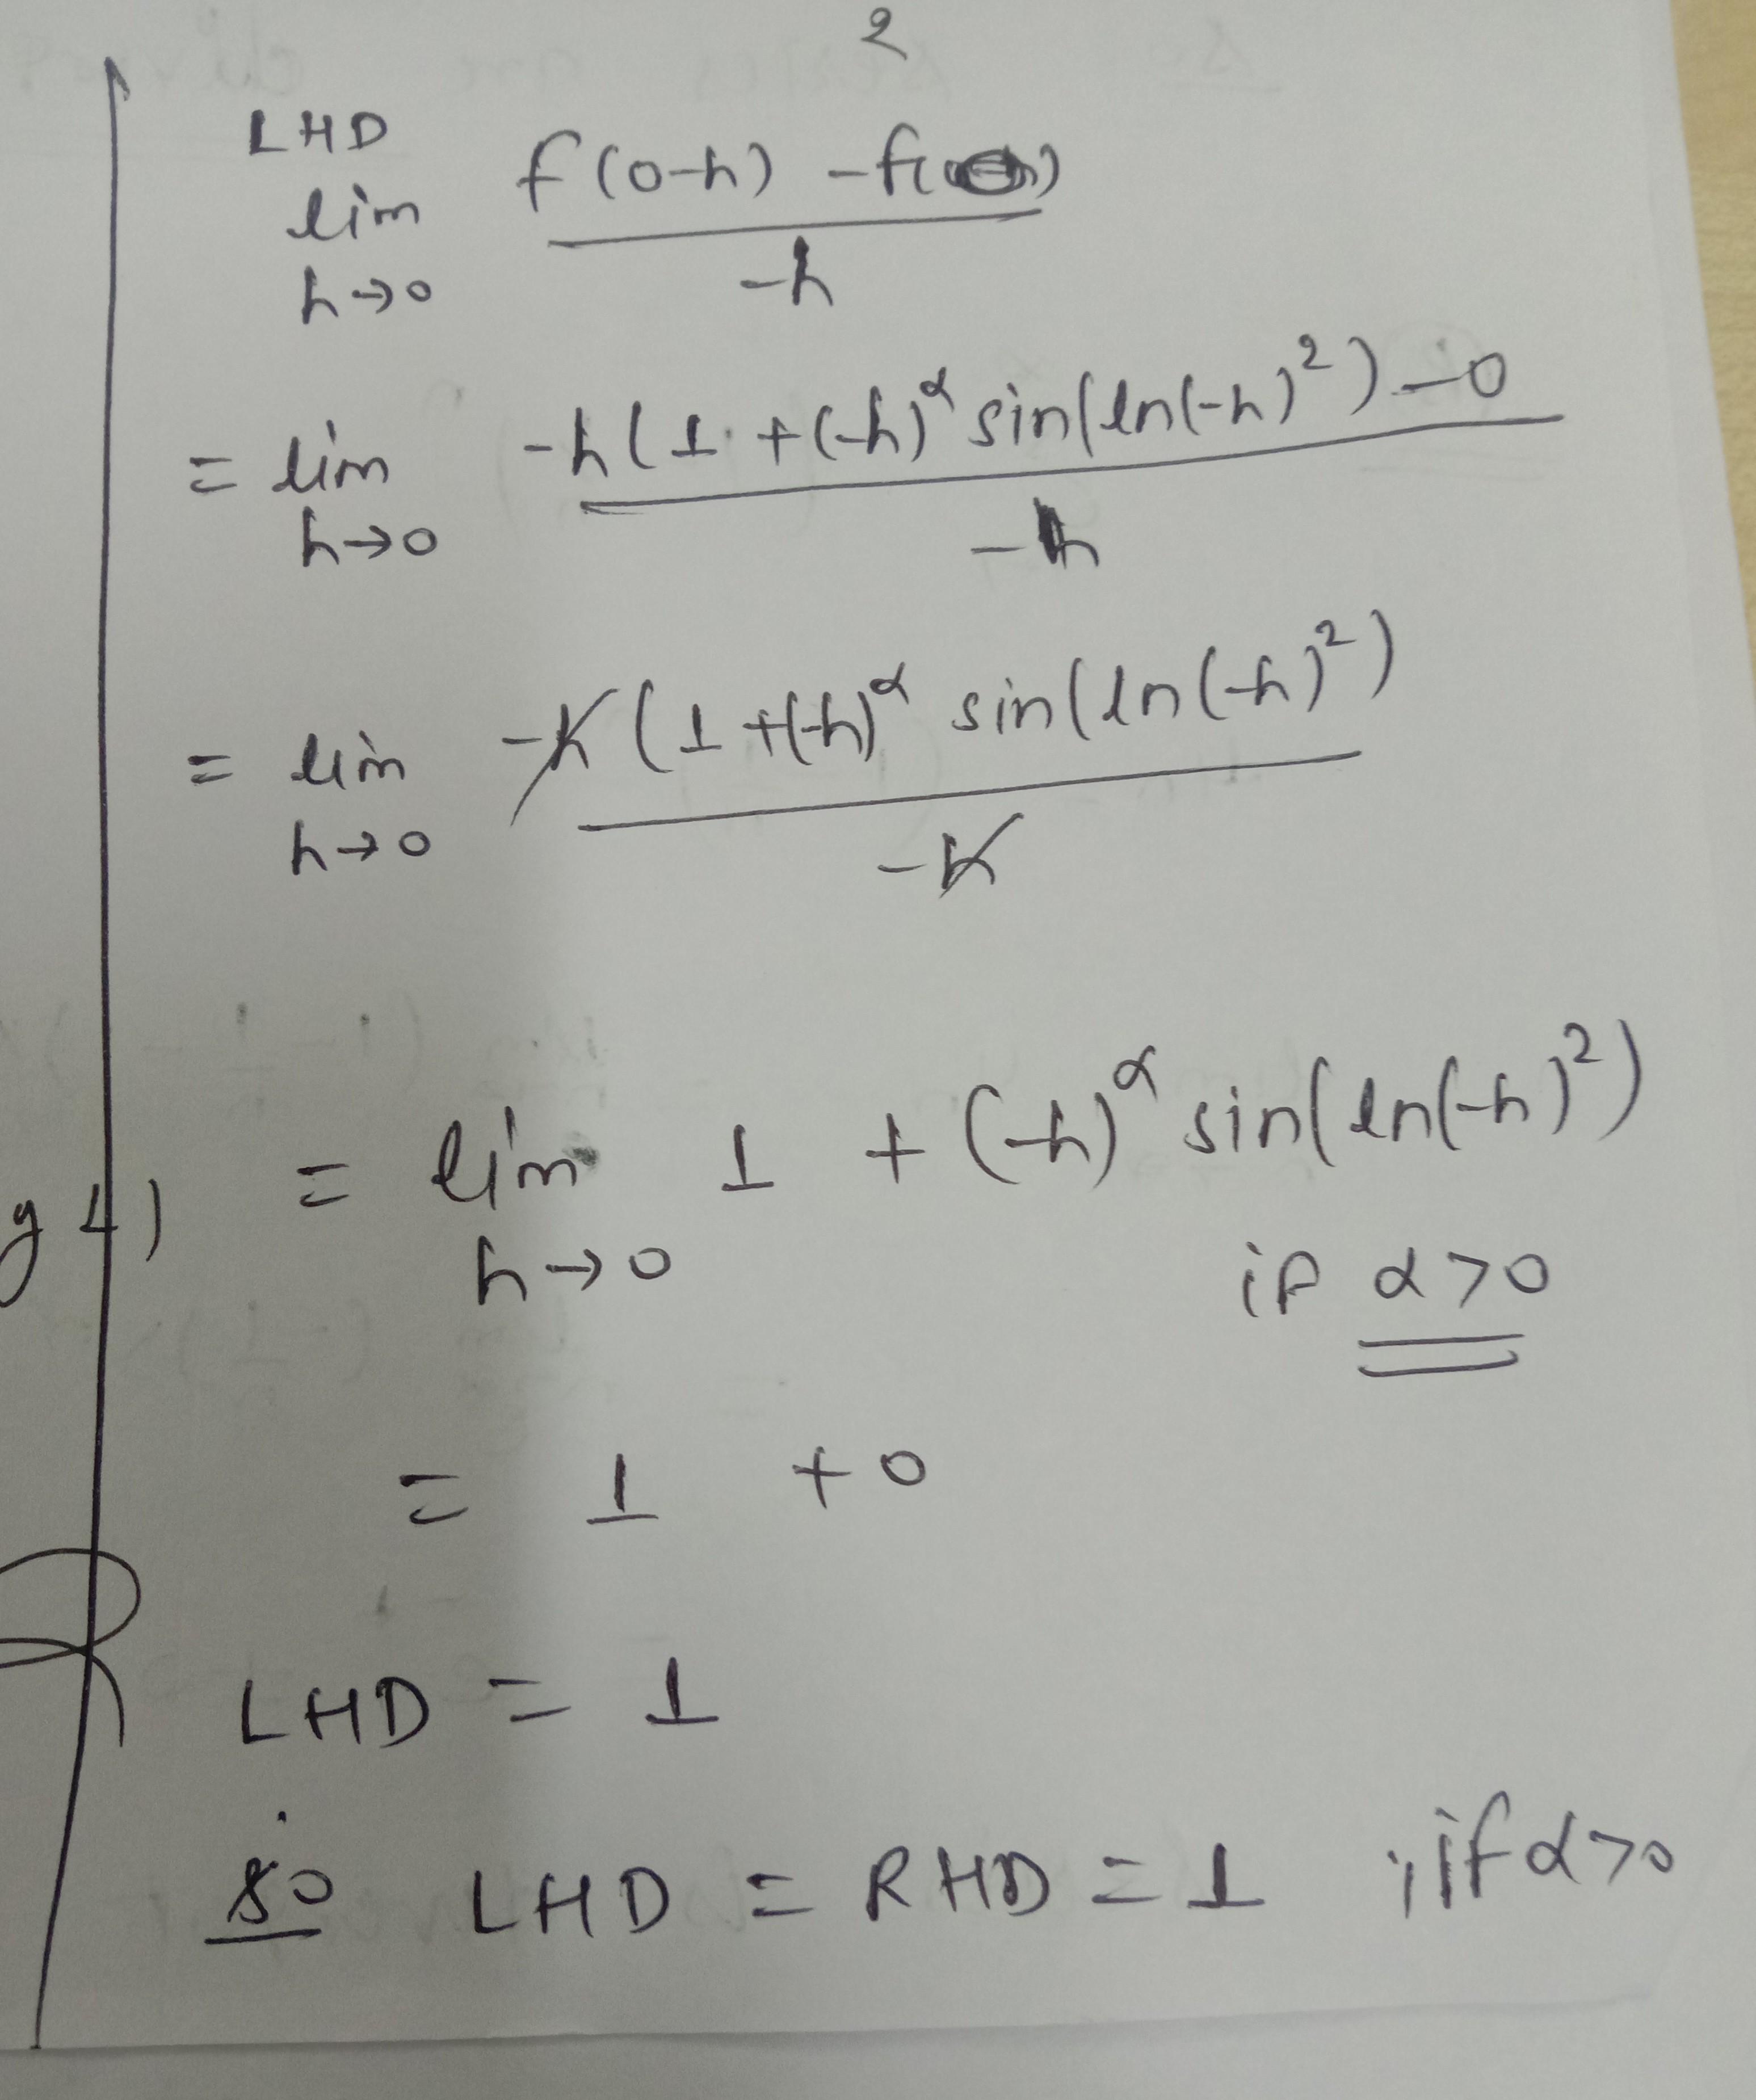 2
LHD
lim f(0-h) -f(0)
h→0 -h
= lim -h(1 +(-h)^α sin(ln(-h)^2)-0
h→0 -h
= lim -h(1 +(-h)^α sin(ln(-h)^2)
h→0 -h
= lim 1 + (-h)^α sin(ln(-h)^2)
y 1)
h→0 if α>0
= 1 +0
LHD = 1
so LHD = RHD = 1 , if α>0